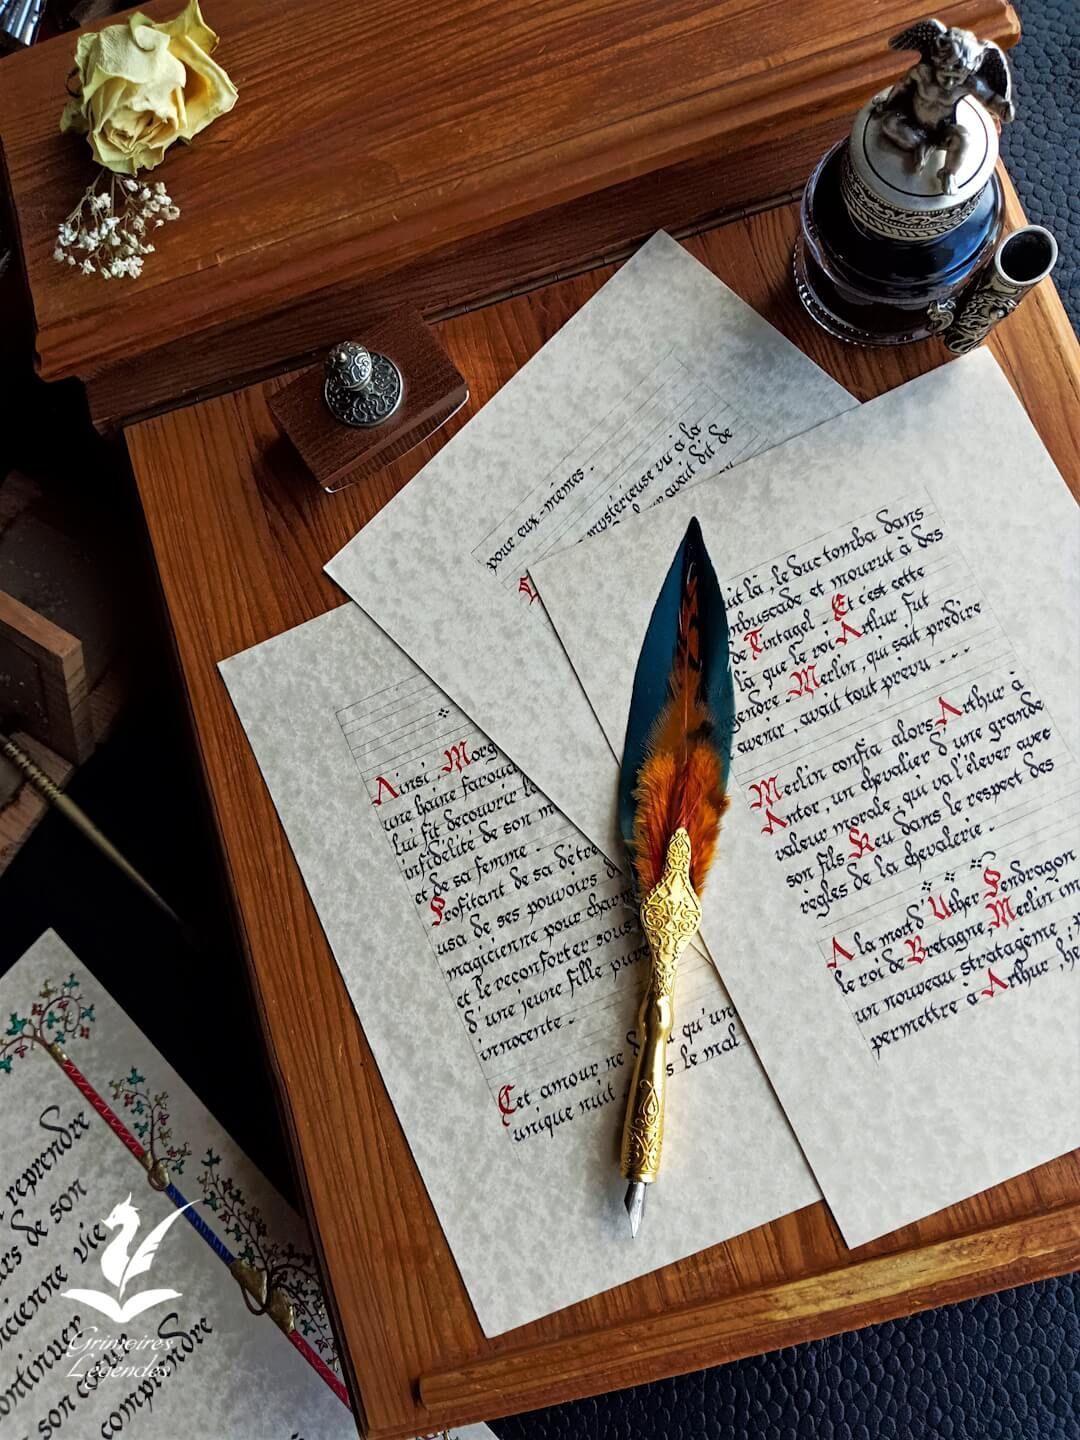 pour eux-mêmes.
mystérieuse vu à la
avait dit de
là, le duc tomba dans
embuscade et mourut à des
de Tintagel. Et c'est cette
là que le roi Arthur fut
gendre. Merlin, qui sait prédire
avenir, avait tout prévu...
Merlin confia alors Arthur à
Antor, un chevalier d'une grande
valeur morale, qui va l'élever avec
son fils Keu dans le respect des
règles de la chevalerie.
A la mort d'Uther Pendragon
le roi de Bretagne, Merlin im
un nouveau stratagème
permettre à Arthur,
Ainsi Morg
une haine farouc
lui fit découvrir l
infidélité de son m
et de sa femme.
Profitant de sa détre
usa de ses pouvoirs d
magicienne pour char
et le réconforter sous
d'une jeune fille pure
innocente.
Cet amour ne d qu'un
unique nuit s le mal
reprendre
rs de son
cienne vie
continuer
son cœur
comprendre
Grimoires
Légendes